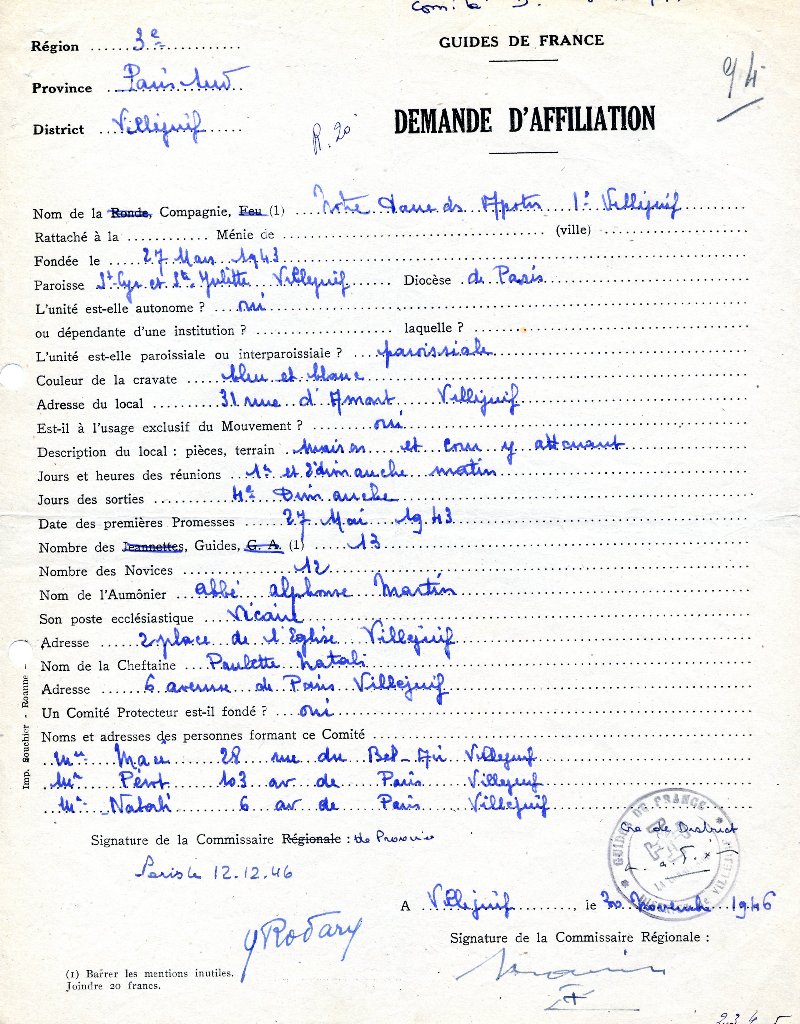 Région 3e
GUIDES DE FRANCE
Province Paris Sud
94
District Villejuif
R. 20
DEMANDE D'AFFILIATION
Nom de la Ronde, Compagnie, Feu (1) Notre Dame des Apotres 1e Villejuif
Rattaché à la ........... Ménie de .......... (ville) ..........
Fondée le 27 Mars 1943
Paroisse St Cyr et Ste Julitte Villejuif Diocèse de Paris
L'unité est-elle autonome ? oui
ou dépendante d'une institution ? .......... laquelle ? ..........
L'unité est-elle paroissiale ou interparoissiale ? paroissiale
Couleur de la cravate bleu et blanc
Adresse du local 31 rue d'Amont Villejuif
Est-il à l'usage exclusif du Mouvement ? oui
Description du local : pièces, terrain maison et cour y attenant
Jours et heures des réunions 1er et 3e dimanche matin
Jours des sorties 4e Dimanche
Date des premières Promesses 27 Mai 1943
Nombre des Jeannettes, Guides, G. A. (1) 13
Nombre des Novices 12
Nom de l'Aumônier abbé alphonse Martin
Son poste ecclésiastique Vicaire
Adresse 2 place de l'Eglise Villejuif
Nom de la Cheftaine Paulette Natali
Adresse 6 avenue de Paris Villejuif
Un Comité Protecteur est-il fondé ? oui
Noms et adresses des personnes formant ce Comité
28 rue du Bel-Air Villejuif
103 av de Paris Villejuif
Natali 6 av de Paris Villejuif
Imp. Souchier - Roanne -
Signature de la Commissaire Régionale : de Province
Paris le 12.12.46
GUIDES DE FRANCE
Cre de District
A Villejuif, le 30 Novembre 1946
Signature de la Commissaire Régionale :
Y Rodary
(1) Barrer les mentions inutiles.
Joindre 20 francs.